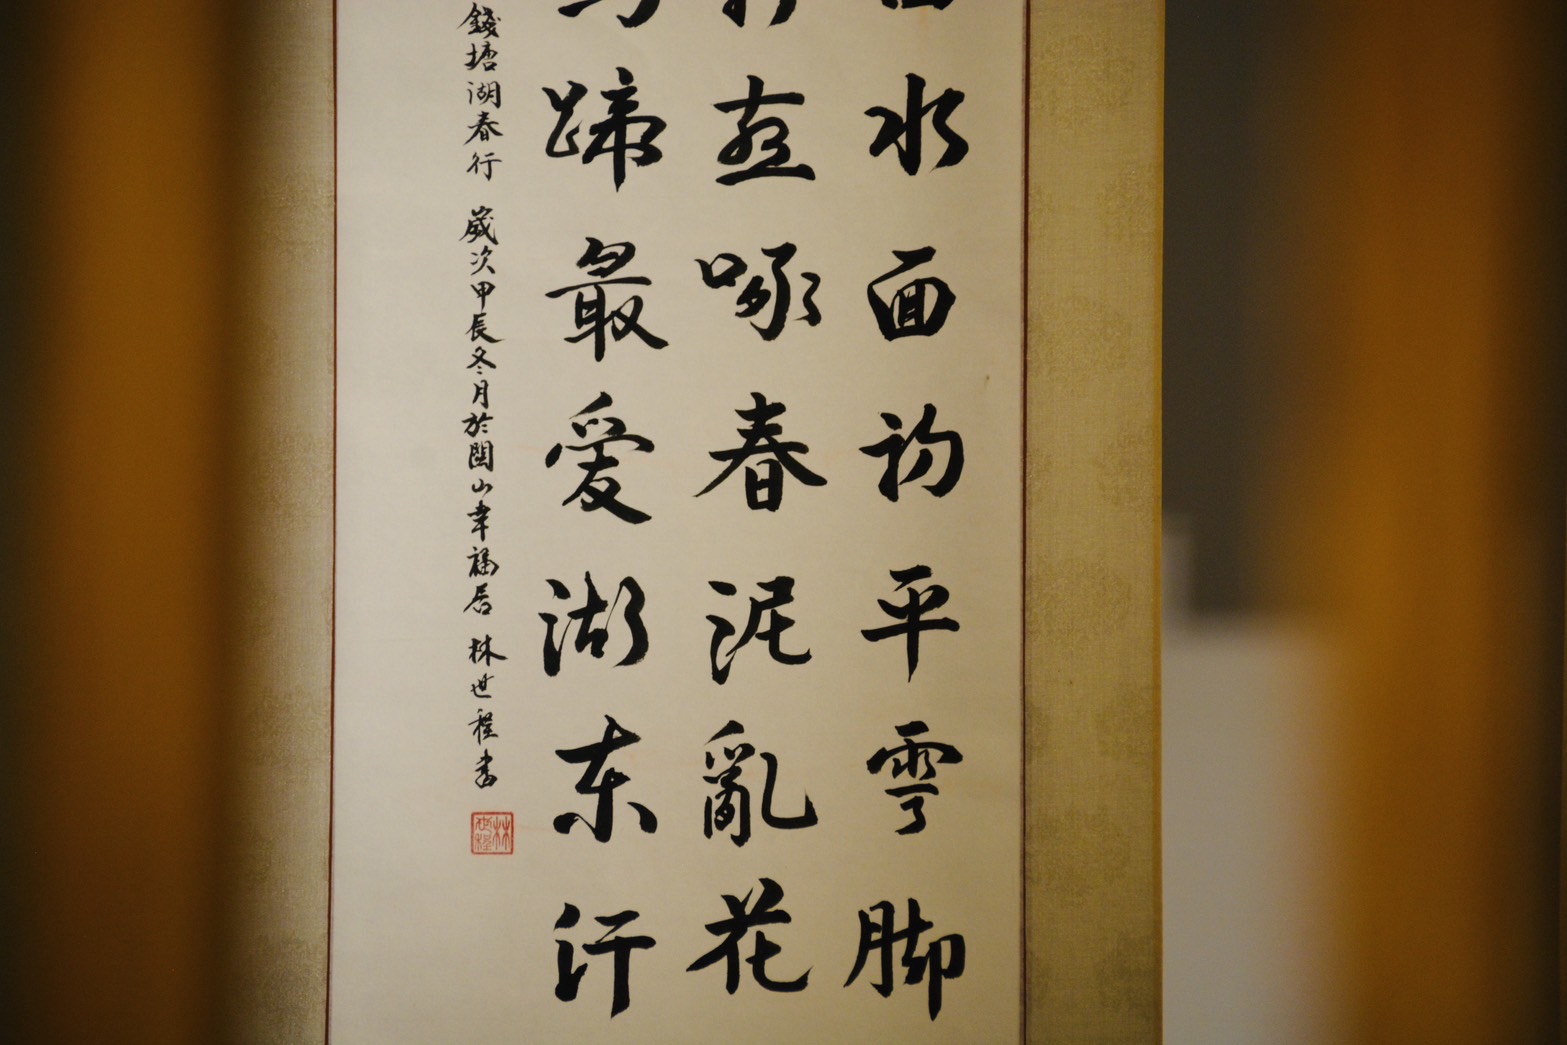 水面初平雲脚
燕啄春泥亂花
蹄最愛湖東行
錢塘湖春行 歲次甲辰冬月於閩山幸福居 林世程書
林世程